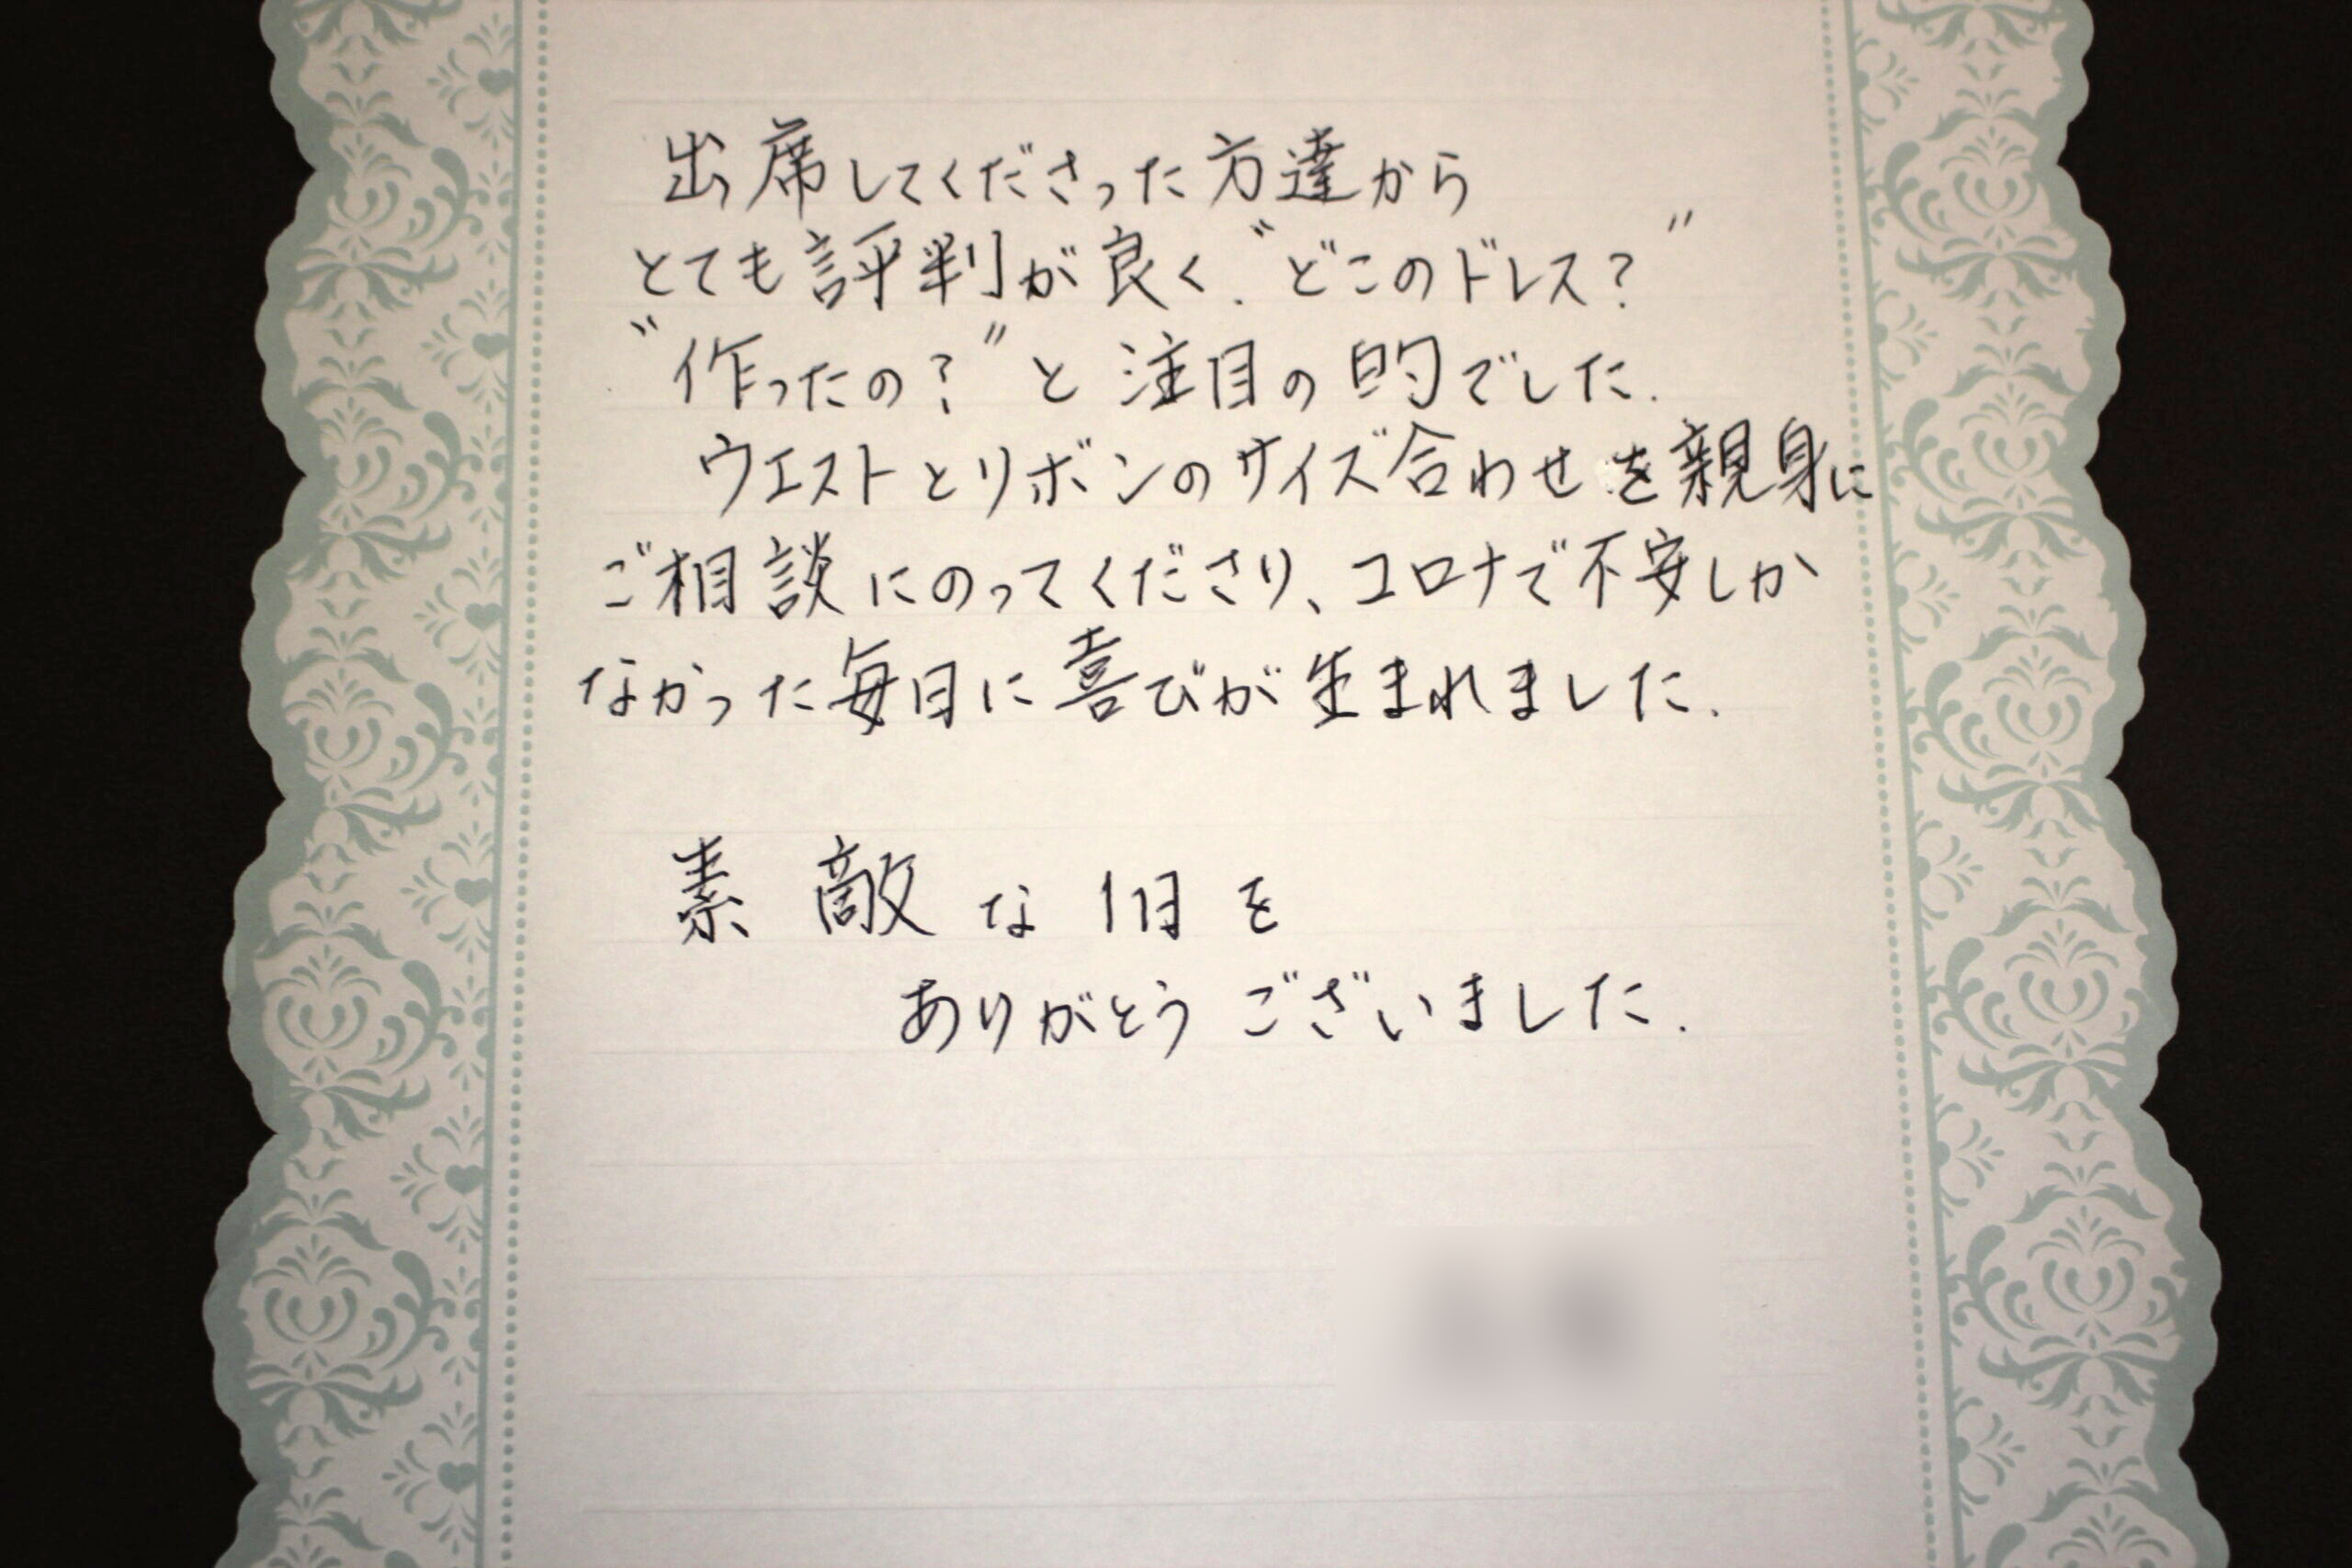 出席してくださった方達から
とても評判が良く、"どこのドレス?"
"作ったの?"と注目の的でした.
ウエストとリボンのサイズ合わせを親身に
ご相談にのってくださり、コロナで不安しか
なかった毎日に喜びが生まれました.
素敵な1日を
ありがとうございました.